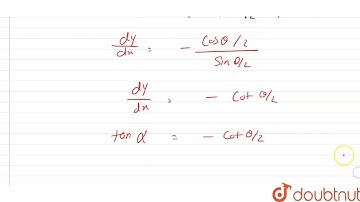 dy/dx = - cosθ/2 / sinθ/2
dy/dx = - cotθ/2
tan α = - cotθ/2
doubtnut